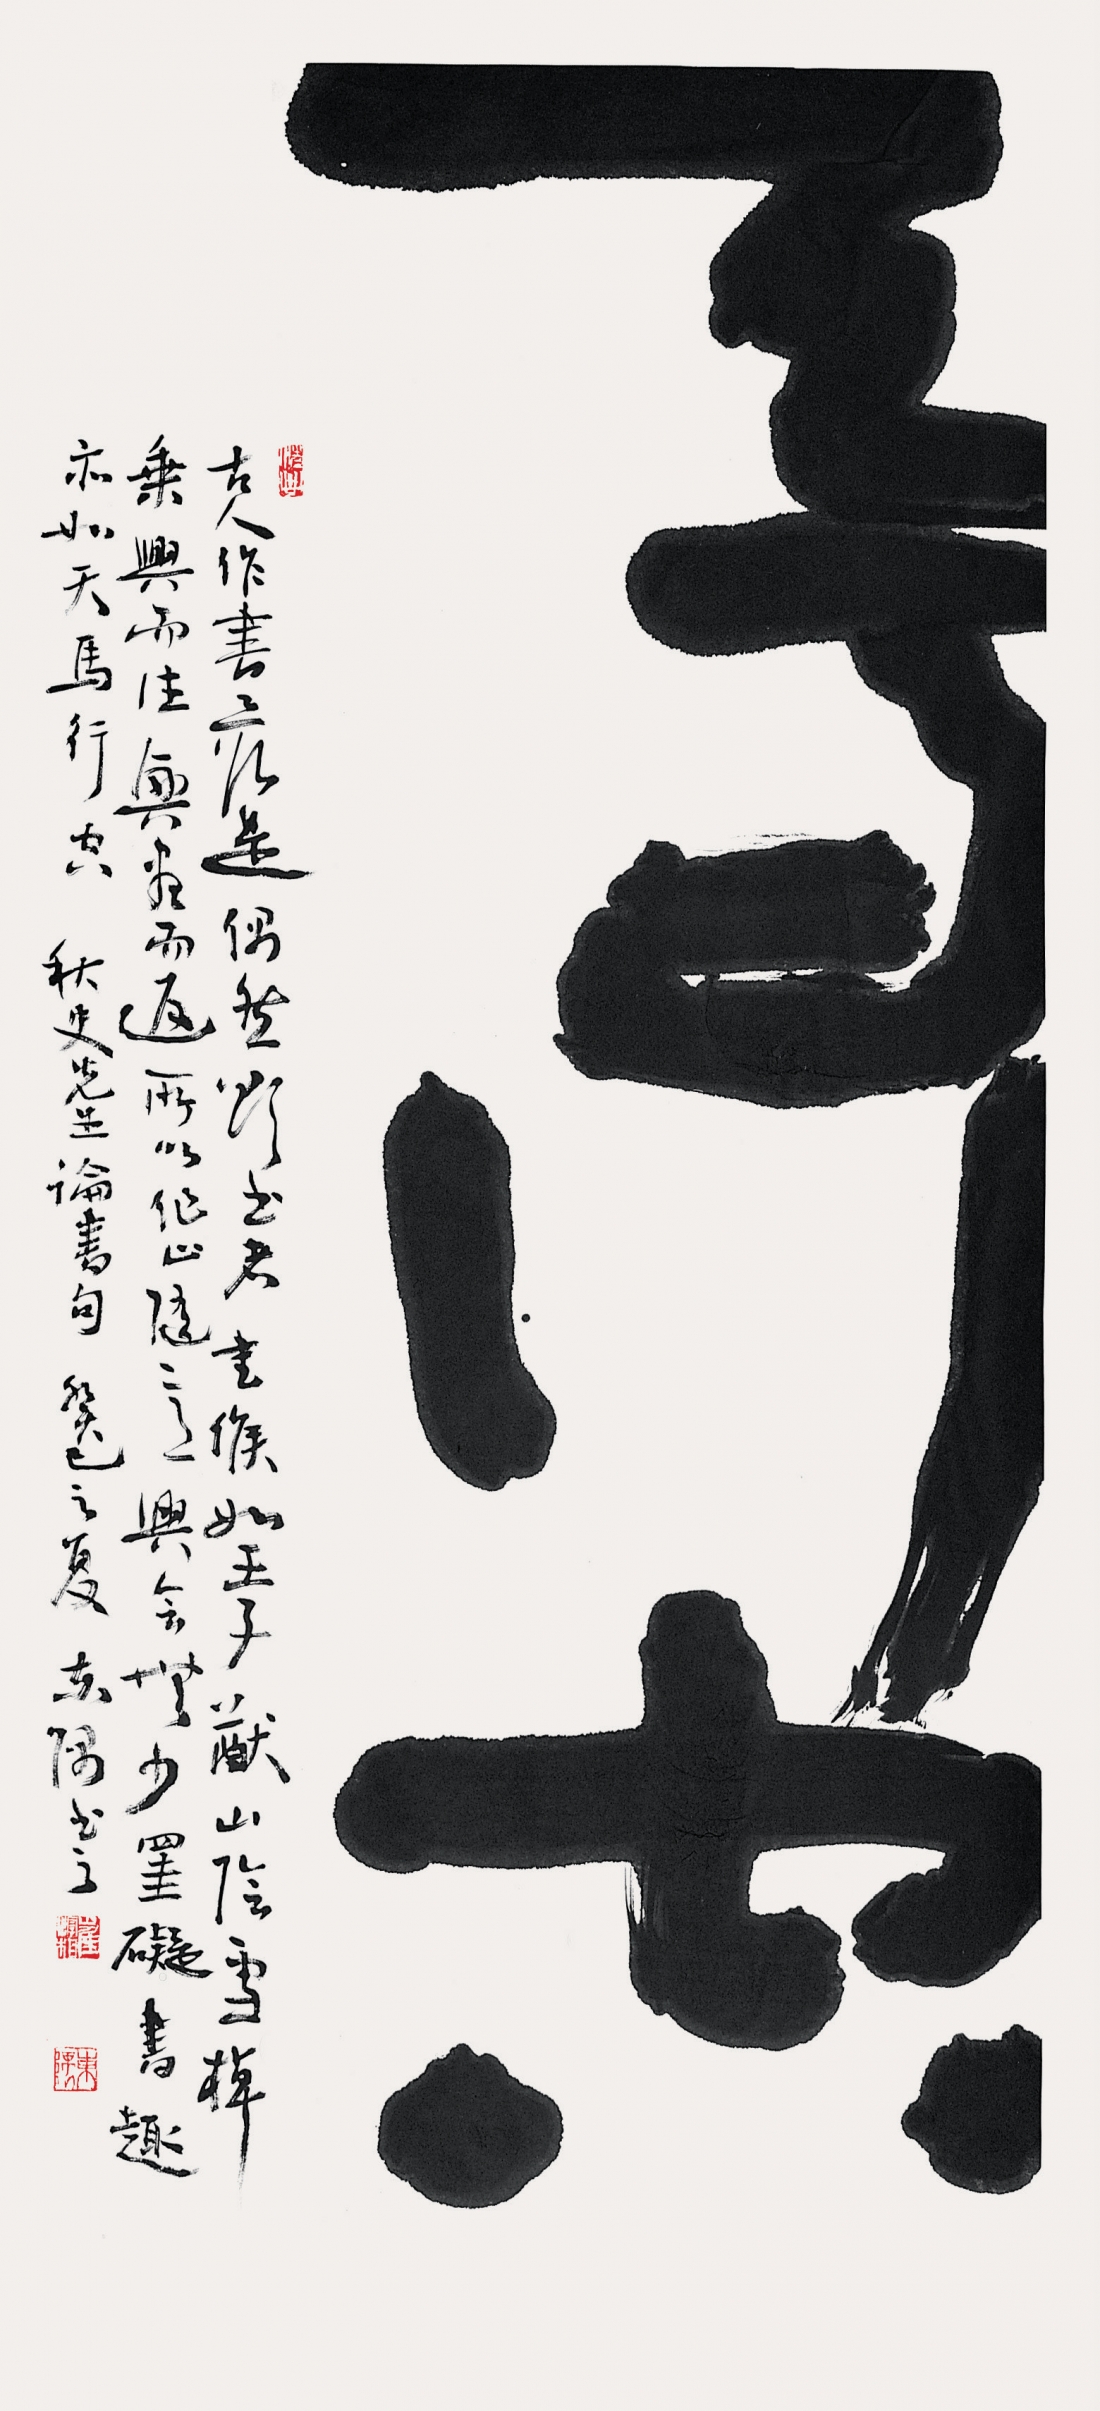 古人作書是偶然書者書候如王子猷山陰雪棹
乘興而往興盡而返所以作止隨意興會無少罣礙書趣
亦如天馬行空 秋史先生論書句 癸巳之夏 隅書之